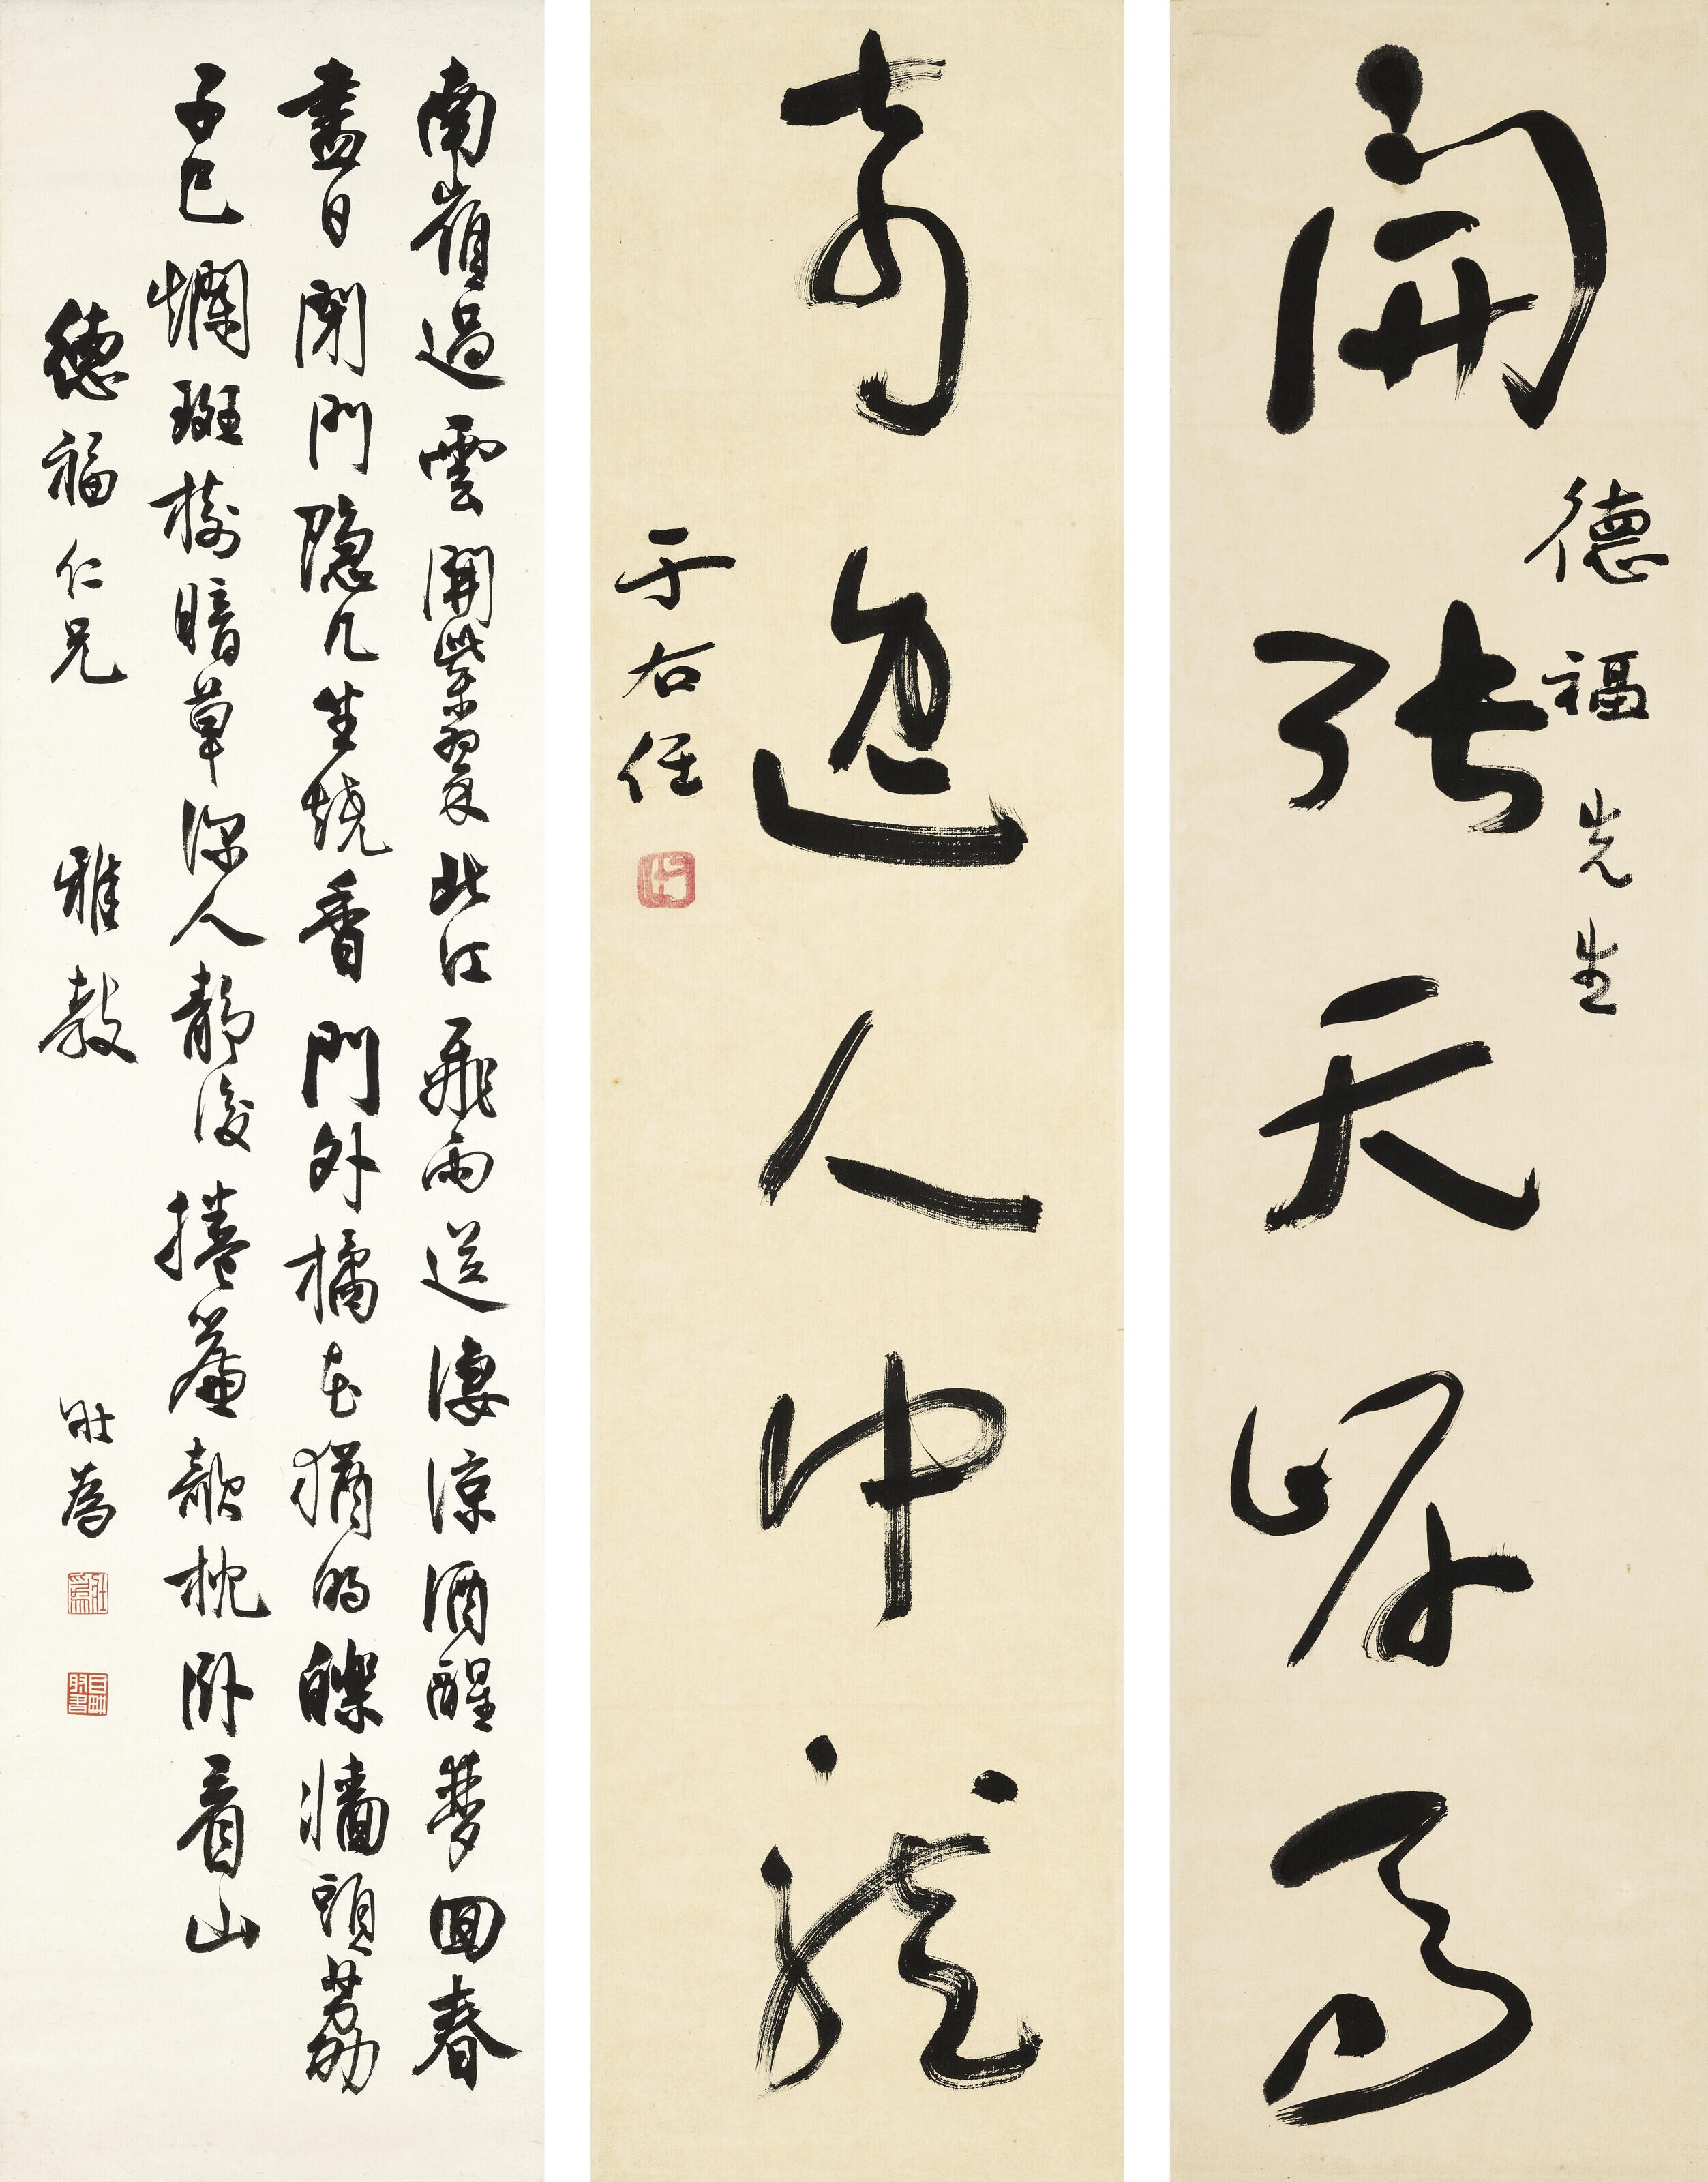 開張天岸馬
德福先生
奇逸人中龍
于右任
南嶺過雲開紫翠北江飛雨送淒涼酒醒夢回春
盡日閉門隱几坐燒香門外橘花猶的皪牆頭荔
子已斕斑樹暗草深人靜後捲簾欹枕臥看山
德福仁兄 雅教 壯為